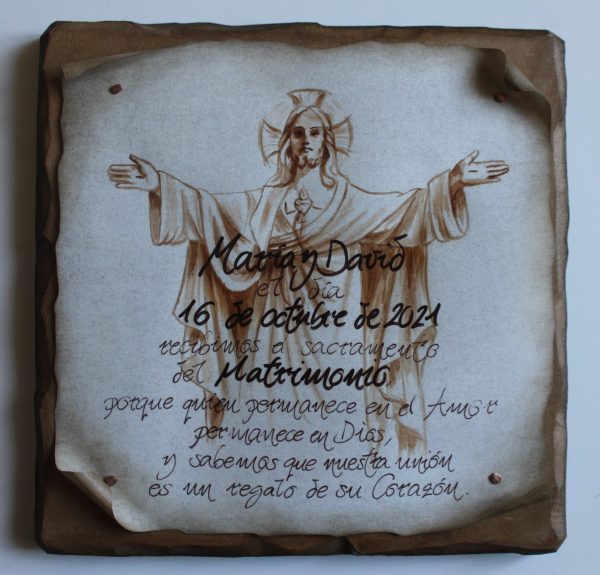 María y David
el día
16 de octubre de 2021
recibimos e sacramento
del Matrimonio
porque quien permanece en el Amor
permanece en Dios,
y sabemos que nuestra unión
es un regalo de su Corazón.